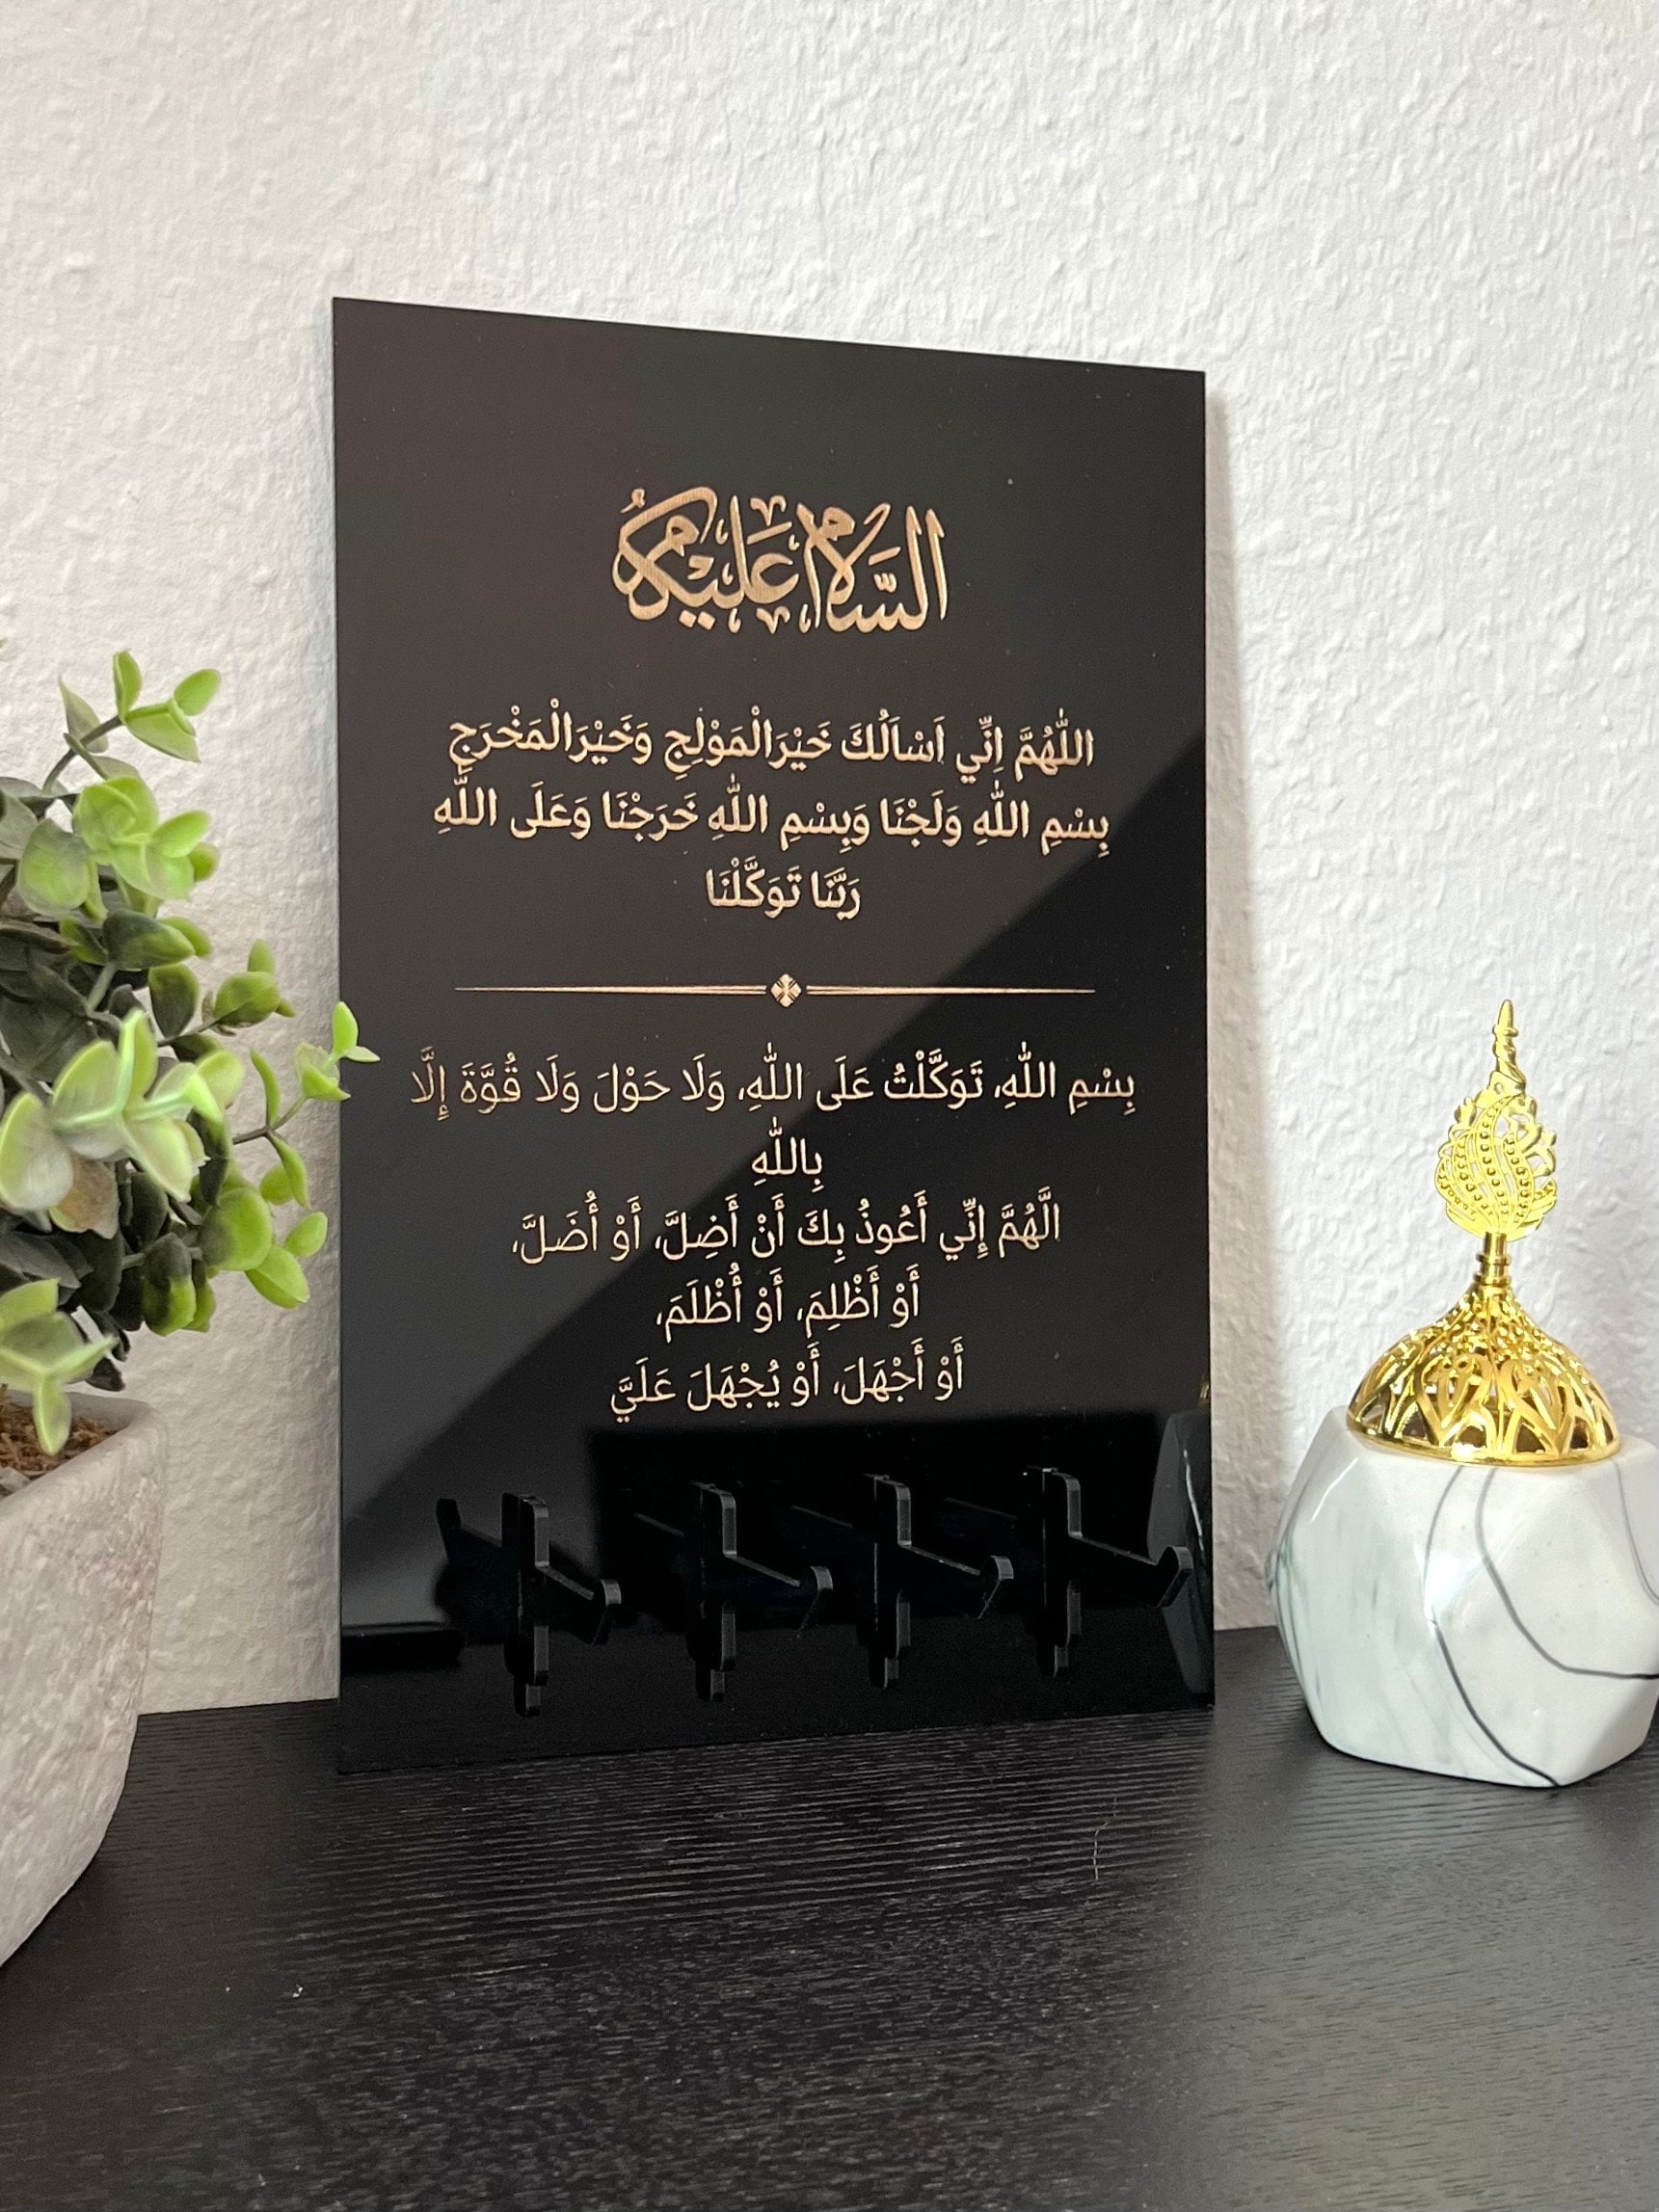 السَّلَامُ عَلَيْكُم
اللّٰهُمَّ اِنِّي اَسْاَلُكَ خَيْرَالْمَوْلِجِ وَخَيْرَالْمَخْرَجِ
بِسْمِ اللّٰهِ وَلَجْنَا وَبِسْمِ اللّٰهِ خَرَجْنَا وَعَلَى اللّٰهِ
رَبَّنَا تَوَكَّلْنَا
بِسْمِ اللّٰهِ، تَوَكَّلْتُ عَلَى اللّٰهِ، وَلَا حَوْلَ وَلَا قُوَّةَ إِلَّا
بِاللّٰهِ
الَّهُمَّ إِنِّي أَعُوذُ بِكَ أَنْ أَضِلَّ، أَوْ أُضَلَّ،
أَوْ أَظْلِمَ، أَوْ أُظْلَمَ،
أَوْ أَجْهَلَ، أَوْ يُجْهَلَ عَلَيَّ